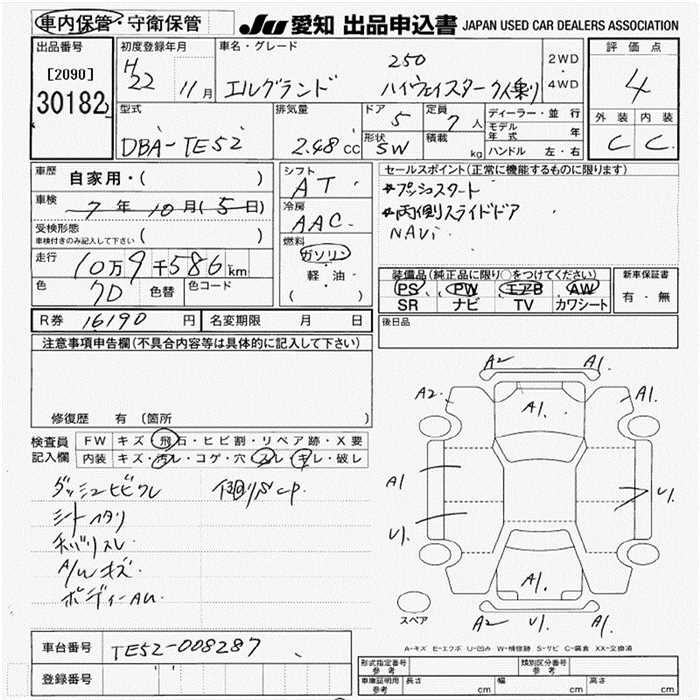 車内保管・守衛保管
JU 愛知 出品申込書 JAPAN USED CAR DEALERS ASSOCIATION
出品番号
[2090]
30182
初度登録年月
H22 11月
車名・グレード
エルグランド 250 ハイウェイスター 7人乗り
2WD・4WD
評価点
4
外装 内装
C C
型式
DBA-TE52
排気量
2.48 cc
ドア
5
形状
SW
定員
7人
積載
kg
ディーラー・並行
モデル年式 年
ハンドル 左・右
車歴
自家用・( )
車検
7年 10月(5日)
受検形態
車検付きのみ記入して下さい ( )
走行
10万9千586km
色
7D
色替
色コード
シフト
AT
冷房
AAC
燃料
ガソリン・軽・油
( )
セールスポイント(正常に機能するものに限ります)
*プッシュスタート
*両側スライドドア
NAVi
装備品(純正品に限り○をつけてください)
PS PW エアB AW
SR ナビ TV カワシート
新車保証書
有・無
R券 16190 円
名変期限 月 日
後日品
注意事項申告欄(不具合内容等は具体的に記入して下さい)
修復歴 有(箇所 )
検査員記入欄
FW キズ・飛石・ヒビ割・リペア跡・X要
内装 キズ・汚レ・コゲ・穴・スレ・キレ・破レ
ダッシュヒビワレ
シートヘタリ
ネバリスレ
A/Wキズ
ボディーAU
A2 A1.
A2. A1.
A1.
A1
U1.
U1.
A1.
A2 U1. A1.
スペア
A-キズ E-エクボ U-凹み W-補修跡 S-サビ C-腐食 XX-交換済
車台番号
TE52-008287
登録番号
形式指定番号 参考
類別区分番号 参考
車庫証明用 参考
長さ cm
幅 cm
高さ cm